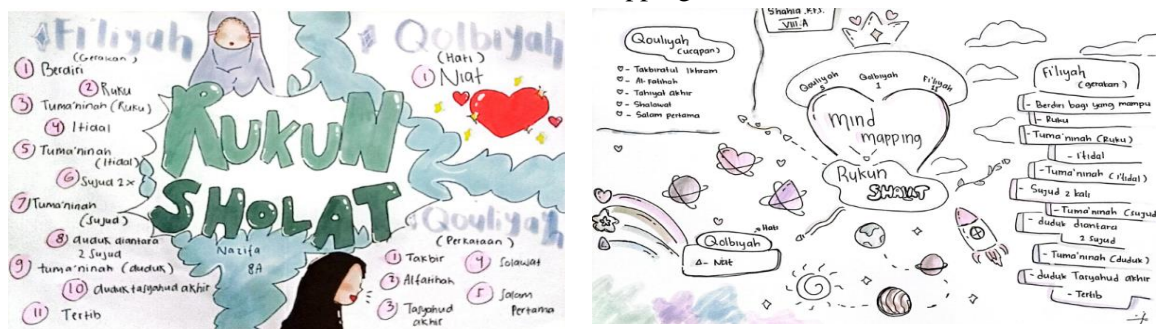 Fi'liyah
(Gerakan)
1 Berdiri
2 Ruku
3 Tuma'ninah (Ruku)
4 Itidal
5 Tuma'ninah
(Itidal)
6 Sujud 2x
7 Tuma'ninah
(Sujud)
8 duduk diantara
2 Sujud
9 tuma'ninah (duduk)
10 duduk tasyahud akhir
11 Tertib
RUKUN
SHOLAT
Nazifa
8A
Qolbiyah
(Hati)
1 Niat
Qouliyah
(Perkataan)
1 Takbir
2 Alfatihah
3 Tasyahud
akhir
4 Solawat
5 Salam
Pertama
Shahia
VIII.A
Qouliyah
(ucapan)
- Takbiratul Ikhram
- Al-Fatihah
- Tahiyat akhir
- Shalawat
- Salam pertama
Qouliyah
5
Qolbiyah
1
Fi'liyah
11
Mind
mapping
Rukun
SHALAT
Qolbiyah
Hati
- Niat
Fi'liyah
(gerakan)
- Berdiri bagi yang mampu
- Ruku
- Tuma'ninah (Ruku)
- I'tidal
- Tuma'ninah (i'tidal)
- Sujud 2 kali
- Tuma'ninah (sujud
- duduk diantara
2 sujud
- Tuma'ninah (duduk)
- duduk Tasyahud akhir
- Tertib